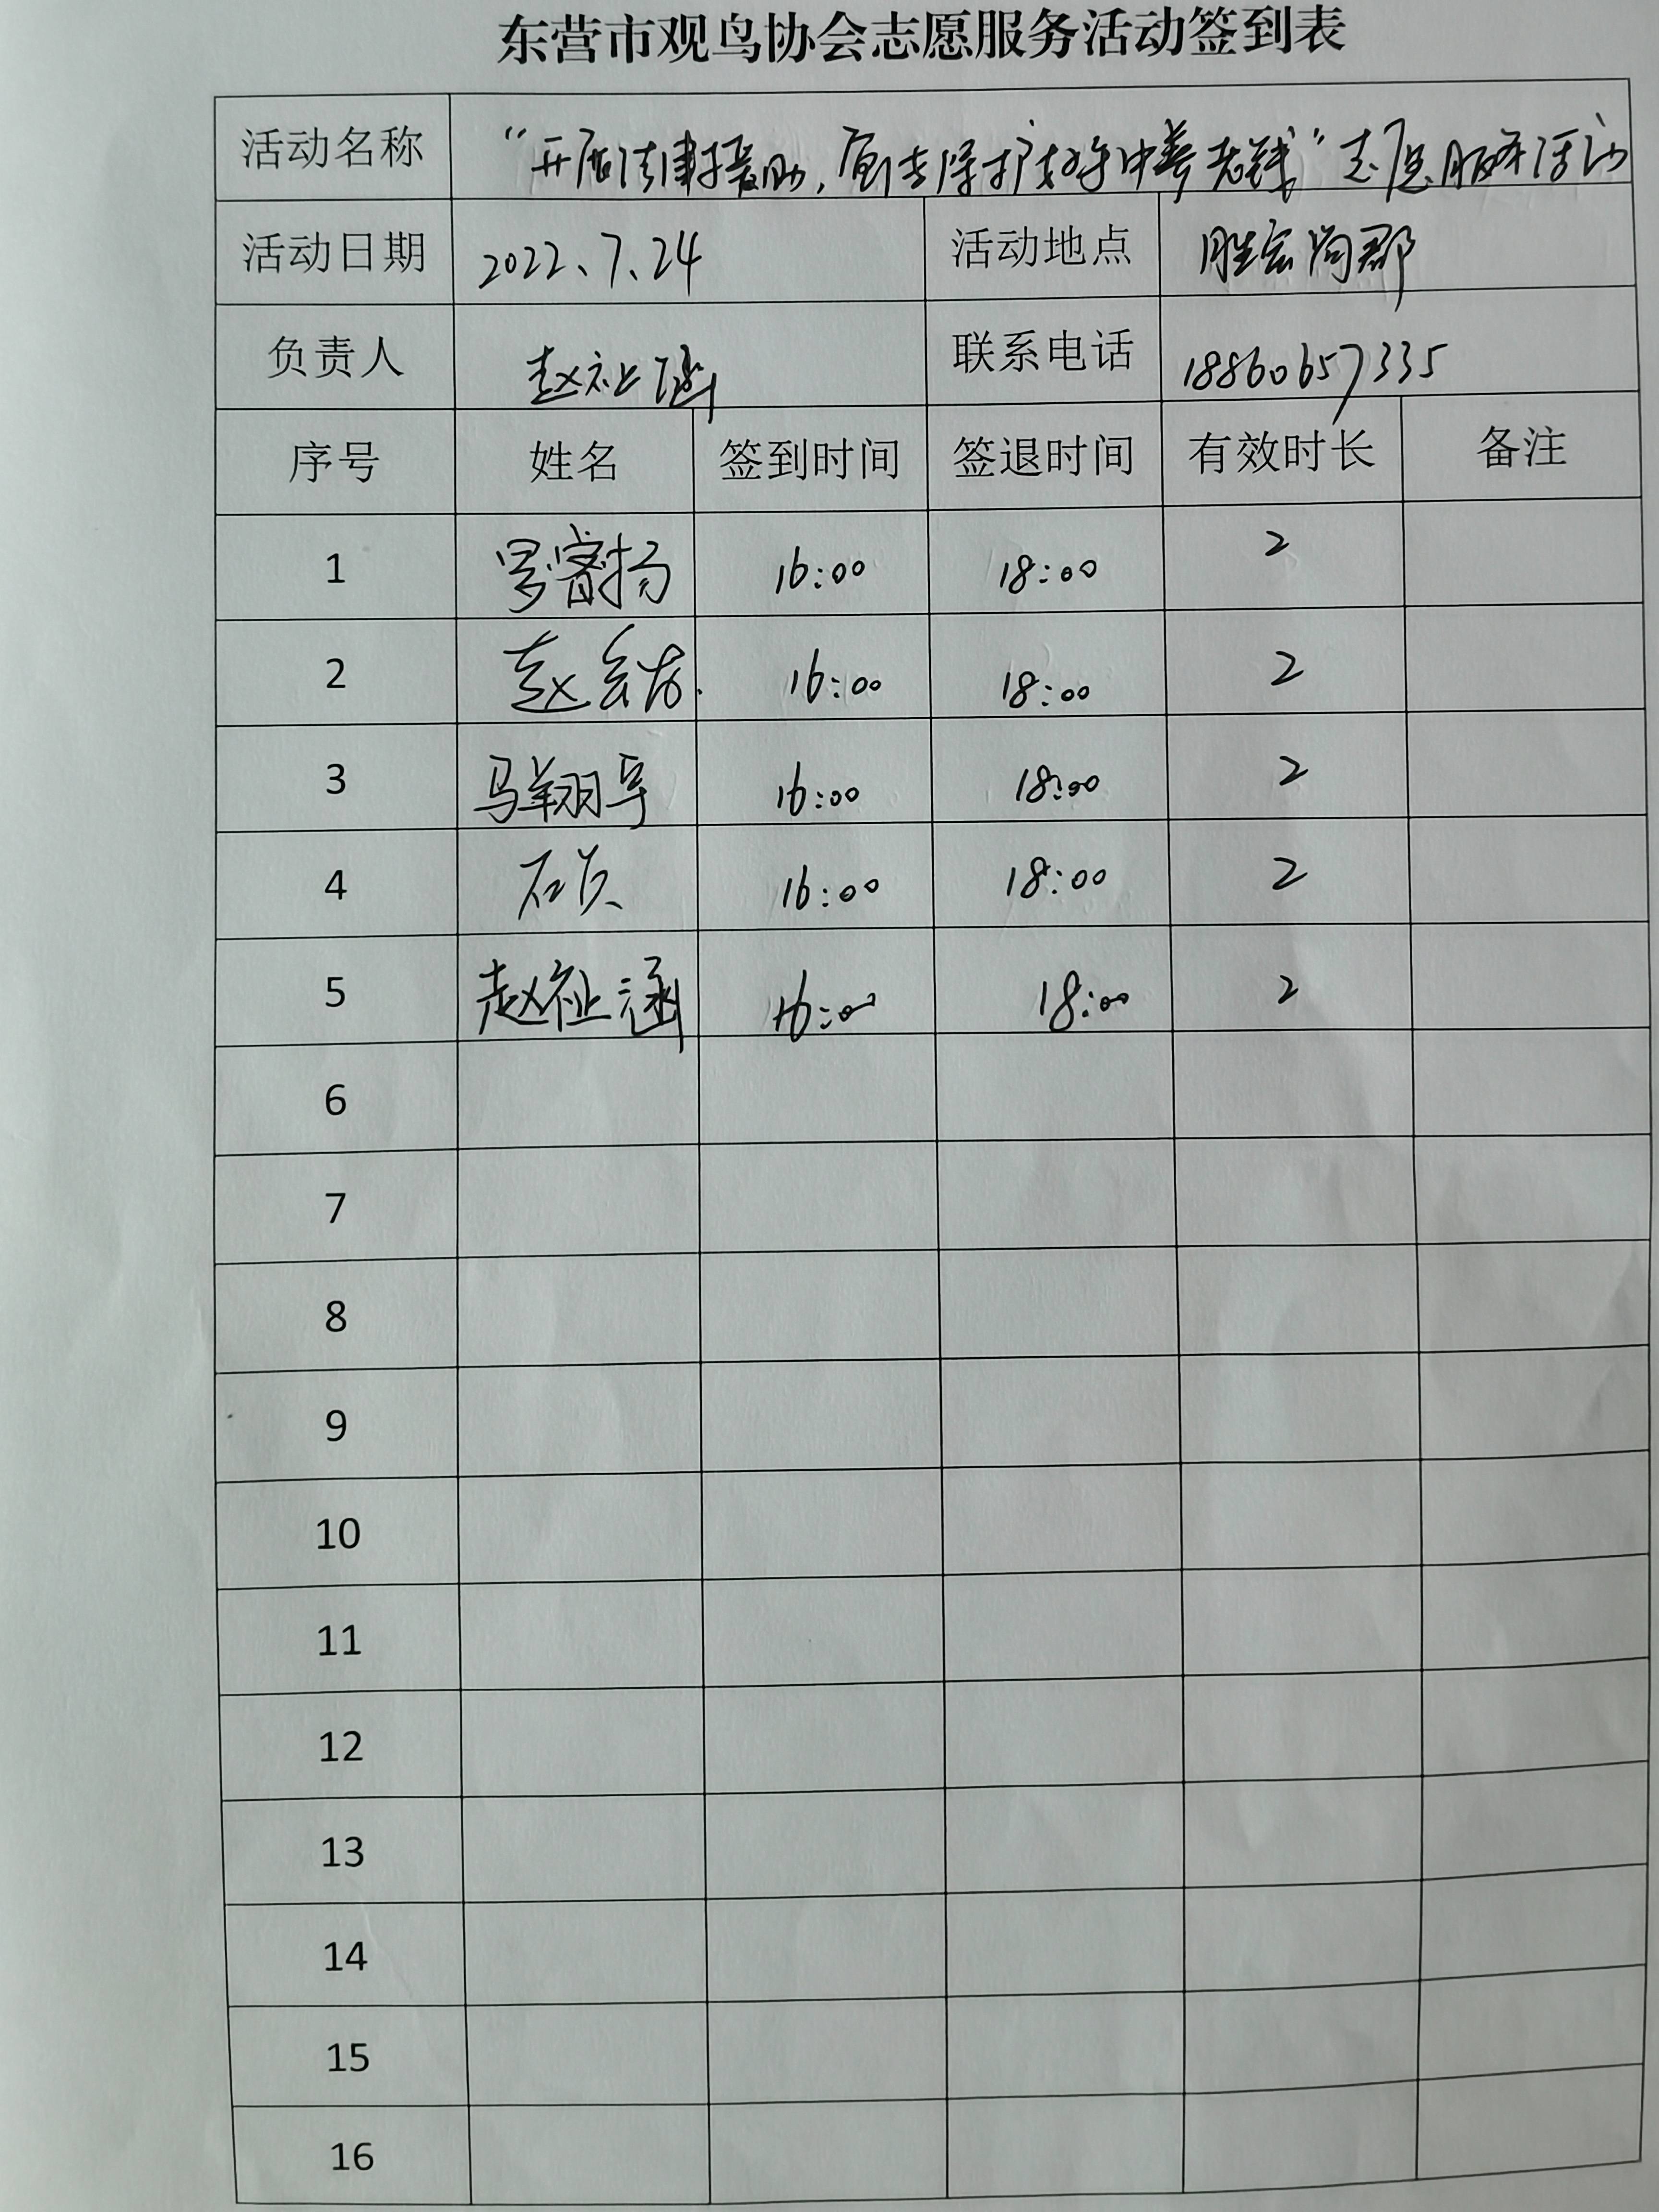 东营市观鸟协会志愿服务活动签到表
活动名称 “开展法律援助，依法保护好养老钱”志愿服务活动
活动日期 2022、7、24 活动地点 胜宏尚郡
负责人 赵祉涵 联系电话 18860657335
序号 姓名 签到时间 签退时间 有效时长 备注
1 罗睿扬 16:00 18:00 2
2 赵 16:00 18:00 2
3 马翔宇 16:00 18:00 2
4 石页 16:00 18:00 2
5 赵祉涵 16:00 18:00 2
6
7
8
9
10
11
12
13
14
15
16